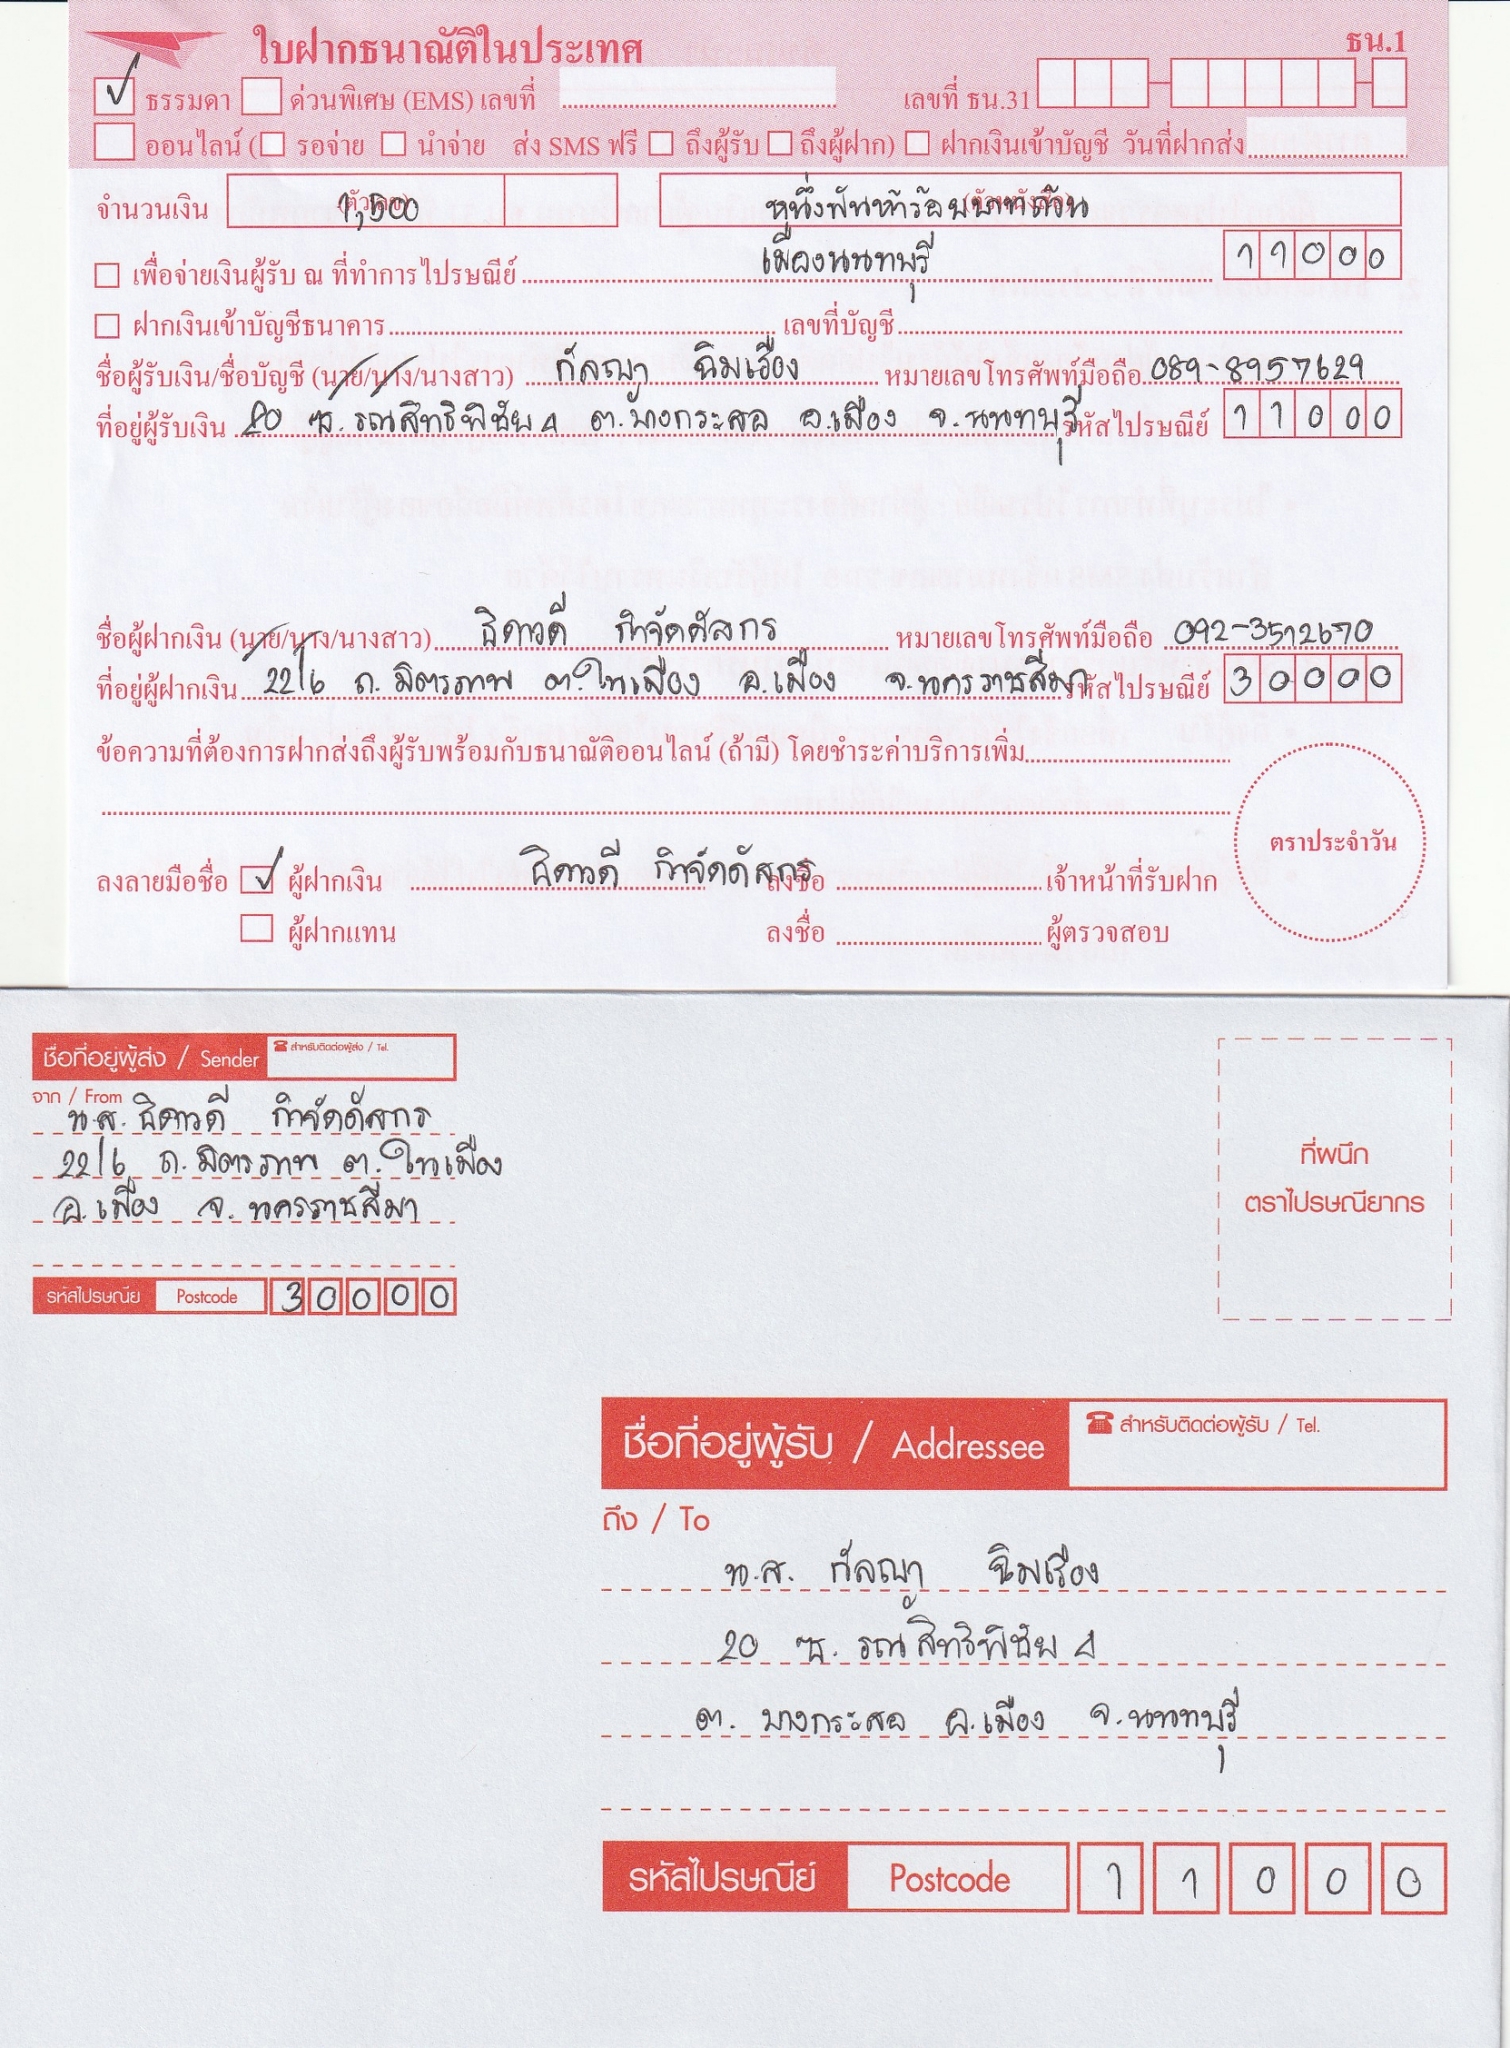 ใบฝากธนาณัติในประเทศ ธน.1
ธรรมดา ด่วนพิเศษ (EMS) เลขที่ เลขที่ ธน.31
ออนไลน์ ( รอจ่าย นำจ่าย ส่ง SMS ฟรี ถึงผู้รับ ถึงผู้ฝาก) ฝากเงินเข้าบัญชี วันที่ฝากส่ง
จำนวนเงิน (ตัวเลข) 1,500 (ตัวหนังสือ) หนึ่งพันห้าร้อยบาทถ้วน
เพื่อจ่ายเงินผู้รับ ณ ที่ทำการไปรษณีย์ เมืองนนทบุรี 11000
ฝากเงินเข้าบัญชีธนาคาร เลขที่บัญชี
ชื่อผู้รับเงิน/ชื่อบัญชี (นาย/นาง/นางสาว) กัลญา ฉิมเรือง หมายเลขโทรศัพท์มือถือ 089-8957629
ที่อยู่ผู้รับเงิน 20 ซ. รณสิทธิพิชัย 4 ต.บางกระสอ อ.เมือง จ.นนทบุรี รหัสไปรษณีย์ 11000
ชื่อผู้ฝากเงิน (นาย/นาง/นางสาว) ธิดาวดี กำจัดภัสกร หมายเลขโทรศัพท์มือถือ 092-3512670
ที่อยู่ผู้ฝากเงิน 22/6 ถ.มิตรภาพ ต.ในเมือง อ.เมือง จ.นครราชสีมา รหัสไปรษณีย์ 30000
ข้อความที่ต้องการฝากส่งถึงผู้รับพร้อมกับธนาณัติออนไลน์ (ถ้ามี) โดยชำระค่าบริการเพิ่ม
ตราประจำวัน
ลงลายมือชื่อ ผู้ฝากเงิน ธิดาวดี กำจัดภัสกร ลงชื่อ เจ้าหน้าที่รับฝาก
ผู้ฝากแทน ลงชื่อ ผู้ตรวจสอบ
ชื่อที่อยู่ผู้ส่ง / Sender สำหรับติดต่อผู้ส่ง / Tel.
จาก / From
น.ส. ธิดาวดี กำจัดภัสกร
22/6 ถ.มิตรภาพ ต.ในเมือง
อ.เมือง จ.นครราชสีมา
รหัสไปรษณีย์ Postcode 30000
ที่ผนึก
ตราไปรษณียากร
ชื่อที่อยู่ผู้รับ / Addressee สำหรับติดต่อผู้รับ / Tel.
ถึง / To
น.ส. กัลญา ฉิมเรือง
20 ซ. รณสิทธิพิชัย 4
ต. บางกระสอ อ.เมือง จ.นนทบุรี
รหัสไปรษณีย์ Postcode 11000